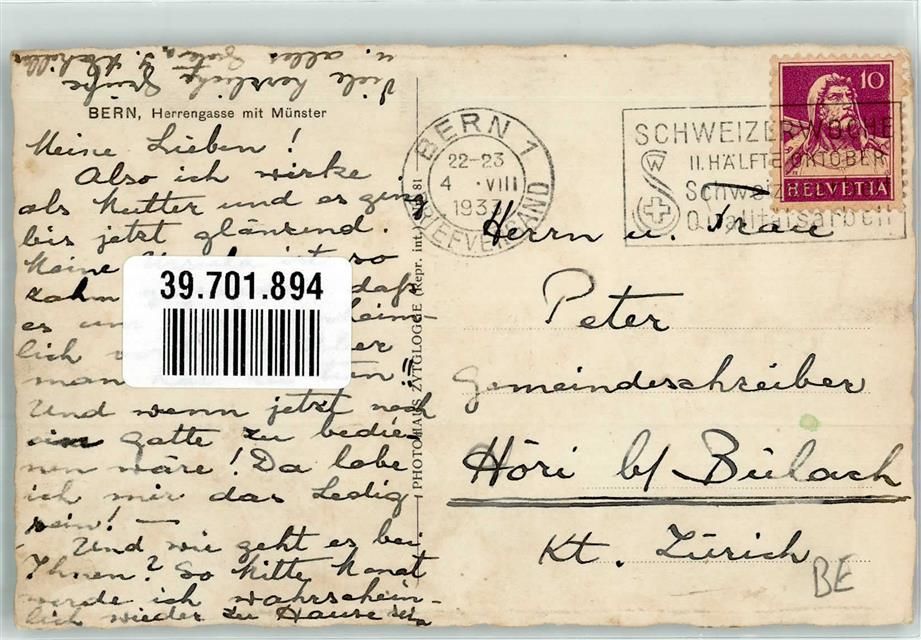 Viele herzliche Grüße
u. alles Gute
BERN, Herrengasse mit Münster
Meine Lieben!
Also ich wirke
als Mutter und es ging
bis jetzt glänzend.
Meine so
zahm daß
es
lich
man
Und wenn jetzt noch
ein Gatte zu bedie-
nen wäre! Da lobe
ich mir das Ledig
sein! —
Und wie geht es bei
Ihnen? So Mitte Monat
werde ich wahrschein-
lich wieder zu Hause sein
39.701.894
PHOTOHAUS ZYTGLOGGE (Repr. int.) No. 81
BERN 1
22-23
4 · VIII
1937
BRIEFVERSAND
SCHWEIZERWOCHE
II. HÄLFTE OKTOBER
Schweizer
Qualitätsarbeit
10
HELVETIA
Herrn u. Frau
Peter
Gemeindeschreiber
Höri b/ Bülach
Kt. Zürich
BE